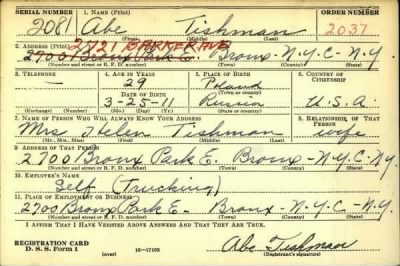 SERIAL NUMBER 1. NAME (Print) ORDER NUMBER
2081 Abe Tishman 2037
(First) (Middle) (Last)
2721 BARKER AVE
2. ADDRESS (Print)
2700 Bronx Park E. Bronx - N.Y.C - N.Y.
(Number and street or R. F. D. number) (Town) (County) (State)
3. TELEPHONE 4. AGE IN YEARS 5. PLACE OF BIRTH 6. COUNTRY OF CITIZENSHIP
— 29 Poland
DATE OF BIRTH (Town or county)
3-25-11 Russia U.S.A.
(Exchange) (Number) (Mo.) (Day) (Yr.) (State or country)
7. NAME OF PERSON WHO WILL ALWAYS KNOW YOUR ADDRESS 8. RELATIONSHIP OF THAT PERSON
Mrs Helen Tishman wife
(Mr., Mrs., Miss) (First) (Middle) (Last)
9. ADDRESS OF THAT PERSON
2700 Bronx Park E. Bronx - N.Y.C - N.Y.
(Number and street or R. F. D. number) (Town) (County) (State)
10. EMPLOYER'S NAME
Self (Trucking)
11. PLACE OF EMPLOYMENT OR BUSINESS
2700 Bronx Park E. Bronx - N.Y.C - N.Y.
(Number and street or R. F. D. number) (Town) (County) (State)
I AFFIRM THAT I HAVE VERIFIED ABOVE ANSWERS AND THAT THEY ARE TRUE.
REGISTRATION CARD
D. S. S. Form 1 (over) 16—17105 Abe Tishman
(Registrant's signature)